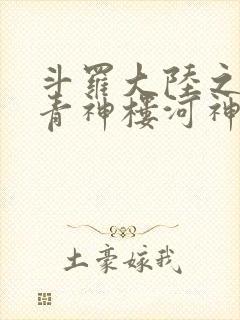 斗羅大陸之
青神樓河神
土豪嫁我